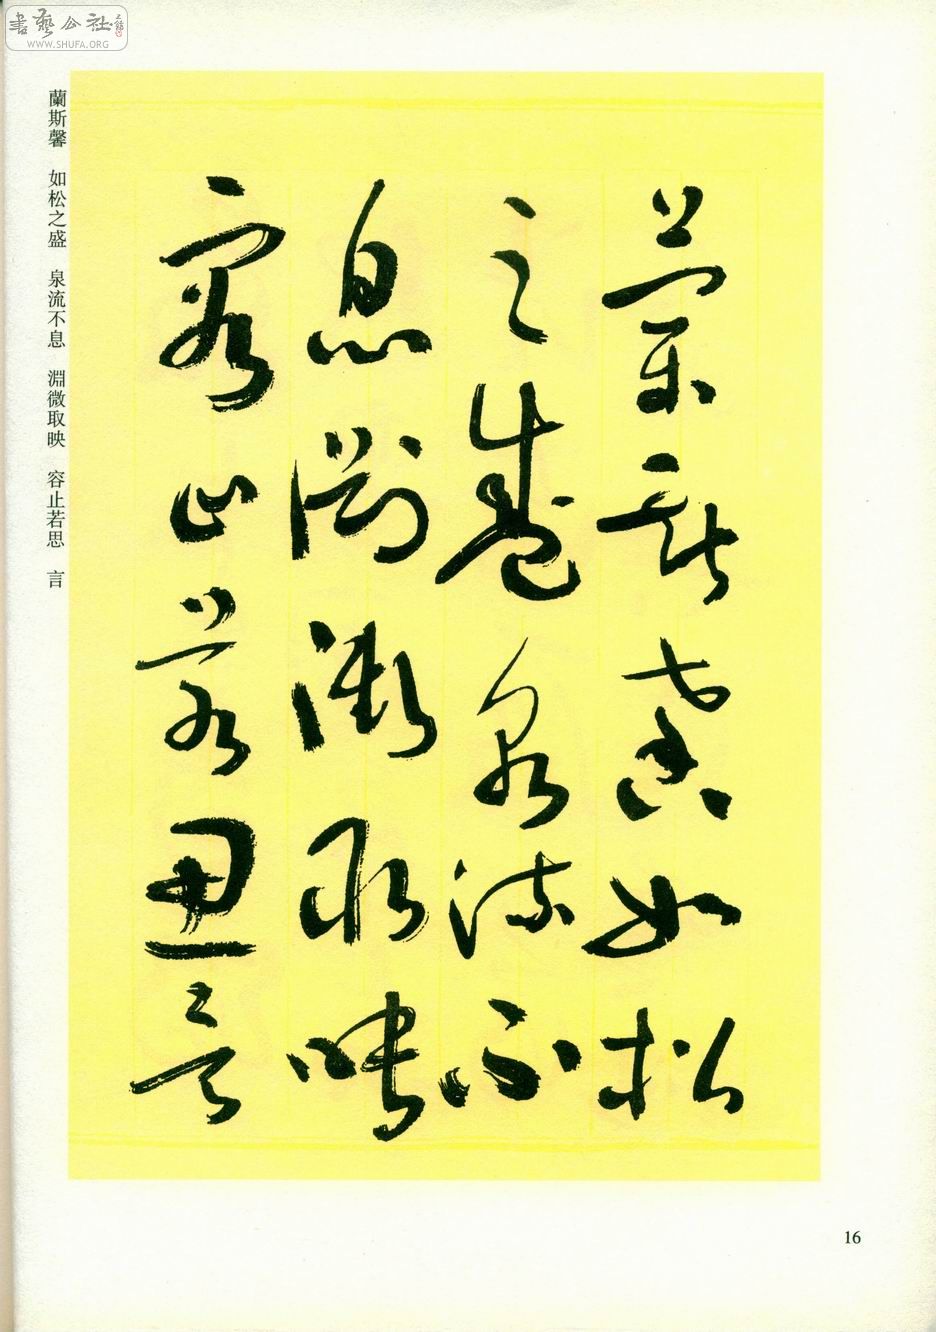 書藝公社
WWW.SHUFA.ORG
蘭斯馨如松
之盛泉流不
息淵微取映
容止若思言
蘭斯馨 如松之盛 泉流不息 淵微取映 容止若思 言
16